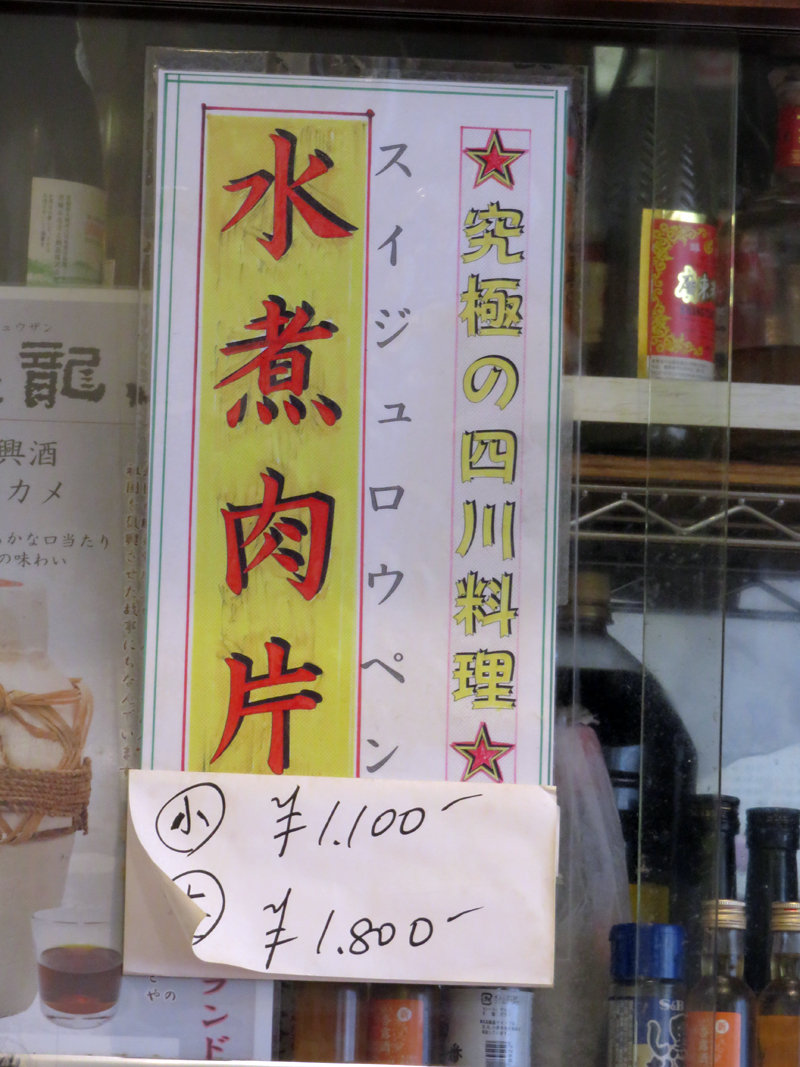 ★究極の四川料理★
スイジュロウペン
水煮肉片
小 ¥1.100-
¥1.800-
ュウザン
龍
興酒
カメ
かな口当たり
の味わい
ランド
S&B